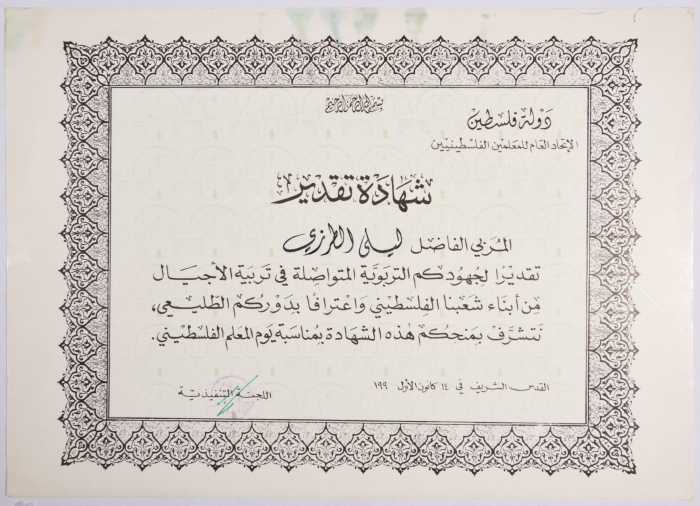 بسم الله الرحمن الرحيم
دولة فلسطين
الإتحاد العام للمعلمين الفلسطينيين
شهادة تقدير
المربي الفاضل ليلى الطرزي
تقديرًا لجهودكم التربوية المتواصلة في تربية الأجيال
من أبناء شعبنا الفلسطيني واعترافا بدوركم الطليعي،
نتشرف بمنحكم هذه الشهادة بمناسبة يوم المعلم الفلسطيني.
القدس الشريف في ١٤ كانون الأول ١٩٩
اللجنة التنفيذية